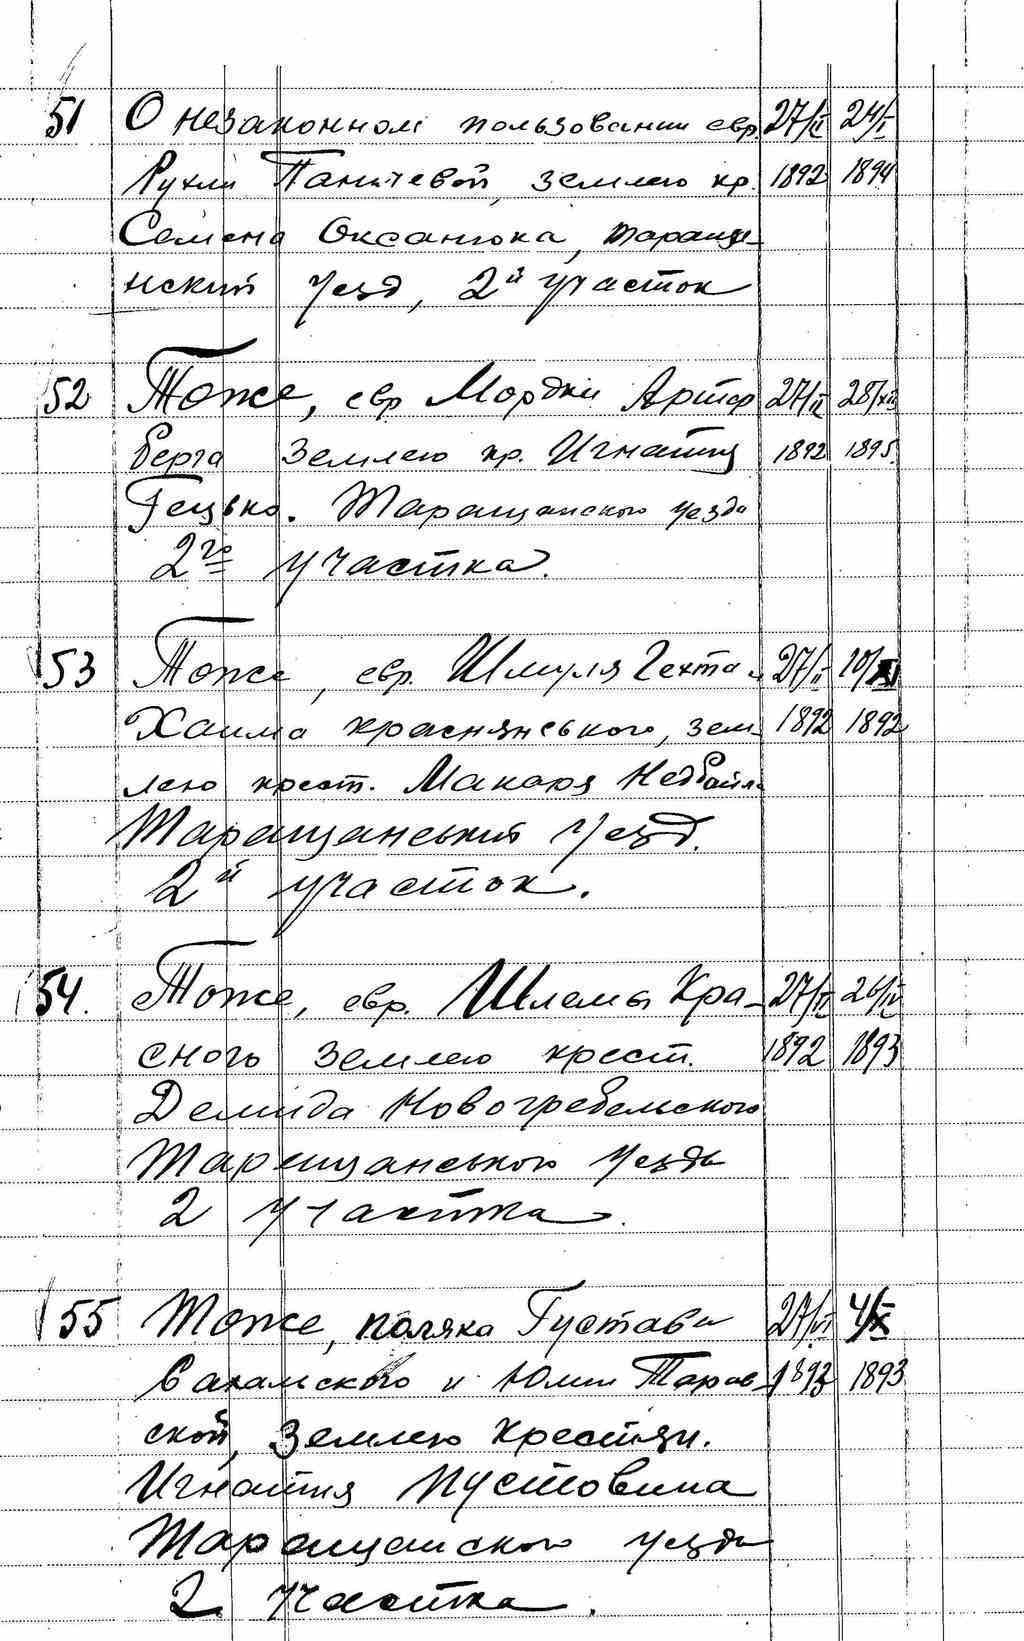 51 О незаконном пользовании евр. 27/II 24/I
Рухли Паничевой, землею кр. 1892 1894
Семена Оксанюка, Тараща-
нский уезд, 2й участок
52 Тоже, евр. Мордки Артф 27/II 28/XII
берга землею кр. Игнатия 1892 1895.
Гецько. Таращанского уезда
2го участка.
53 Тоже, евр. Шмуля Гехта и 27/II 10/XI
Хаима Краснянського, зем- 1892 1892
лею крест. Макара Недбайл
Таращанський уезд.
2й участок.
54. Тоже, евр. Шлемы Кра- 27/II 26/IV
сного землею крест. 1892 1893
Демида Новогребельского
Таращанського уезда
2 участка.
55 Тоже, поляка Густава 27/VI 4/X
и Юлии Таров- 1893 1893
ской, землею крестян.
Игнатия Пустовита
Таращанского уезда
2 участка.